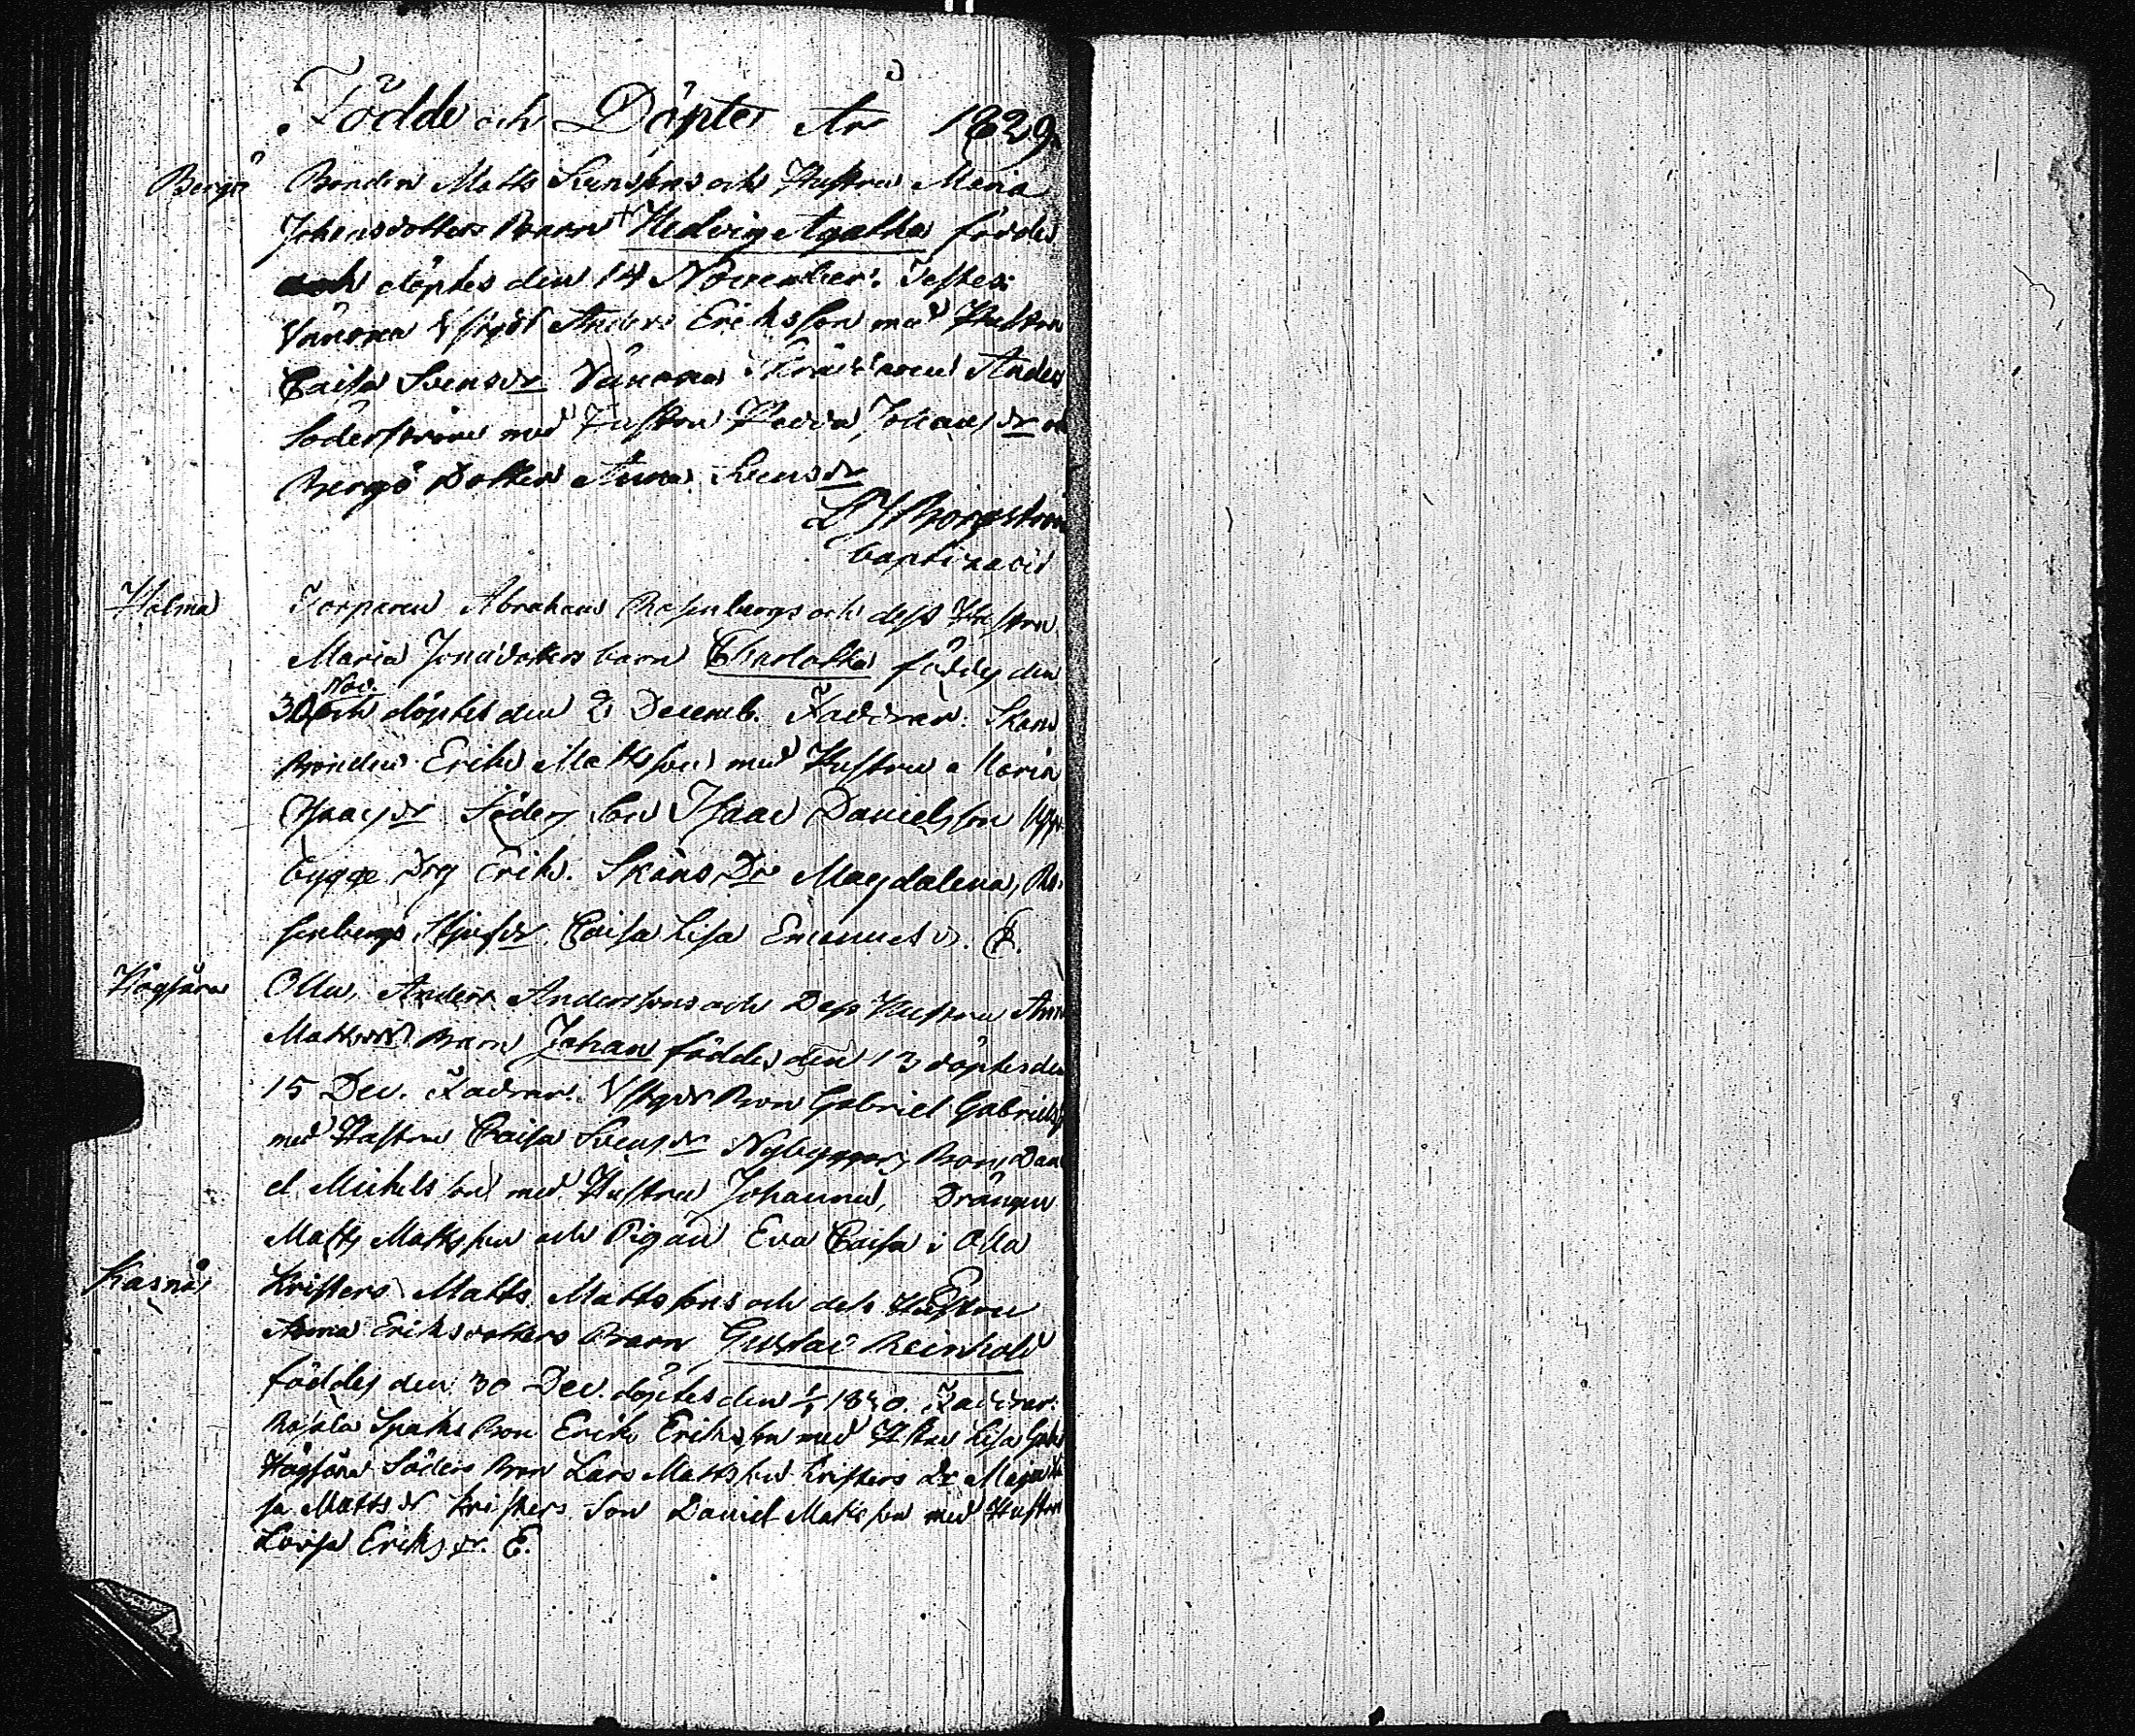 Födde och Döpte År 1829.
Bergö Bonden Matts Svensons och Hustru Maria
Johansdotters Barn Hedvig Agatha föddes
och döptes den 14 November. Testes:
Vänoxa Anders Eriksson med Hustru
Caisa Svensdr Vänoxa Anders
Söderström med Hustru Johansdr och
Bergö Dotter Anna Svensdr
Borgström
baptizavit
Holma Torparen Abraham Rosenbergs och dess Hustru
Maria Jonædotters barn Charlotta föddes den
Nov.
30 och döptes den 2 Decemb. Faddrar: Skans
Bonden Erik Mattsson med Hustru Maria
Isaacsdr Söders Son Isaac Danielsson
bygge Drg Erik. Skäns Dr Magdalena, Ro-
senbergs Stjufdr Caisa Lisa Emanuelsdr.
Högsåra Olla, Anders Anderssons och Dess Hustru Anna
Mattsdrs Barn Johan föddes den 13 döptes den
15 Dec. Faddrar: Bon Gabriel Gabriels
med Hustru Caisa Svensdr Nybyggars Bon Dani
el Michelsson med Hustru Johanna, Drängen
Matts Mattsson och Pigan Eva Caisa i Olla
Kasnäs Kristers Matts Mattssons och dess Hustru
Anna Eriksdotters Barn Gustav Reinhold
föddes den 30 Dec. döptes den 1/1 1830. Faddrar:
Rosala Spaks Bon Erik Eriksson med Hstru Lisa Gabr
Högsåra Söders Bon Lars Mattsson Kristers Dr Maja Li
sa Mattsdr Kristers Son Daniel Mattsson med Hustru
Lovisa Eriksdr. E.